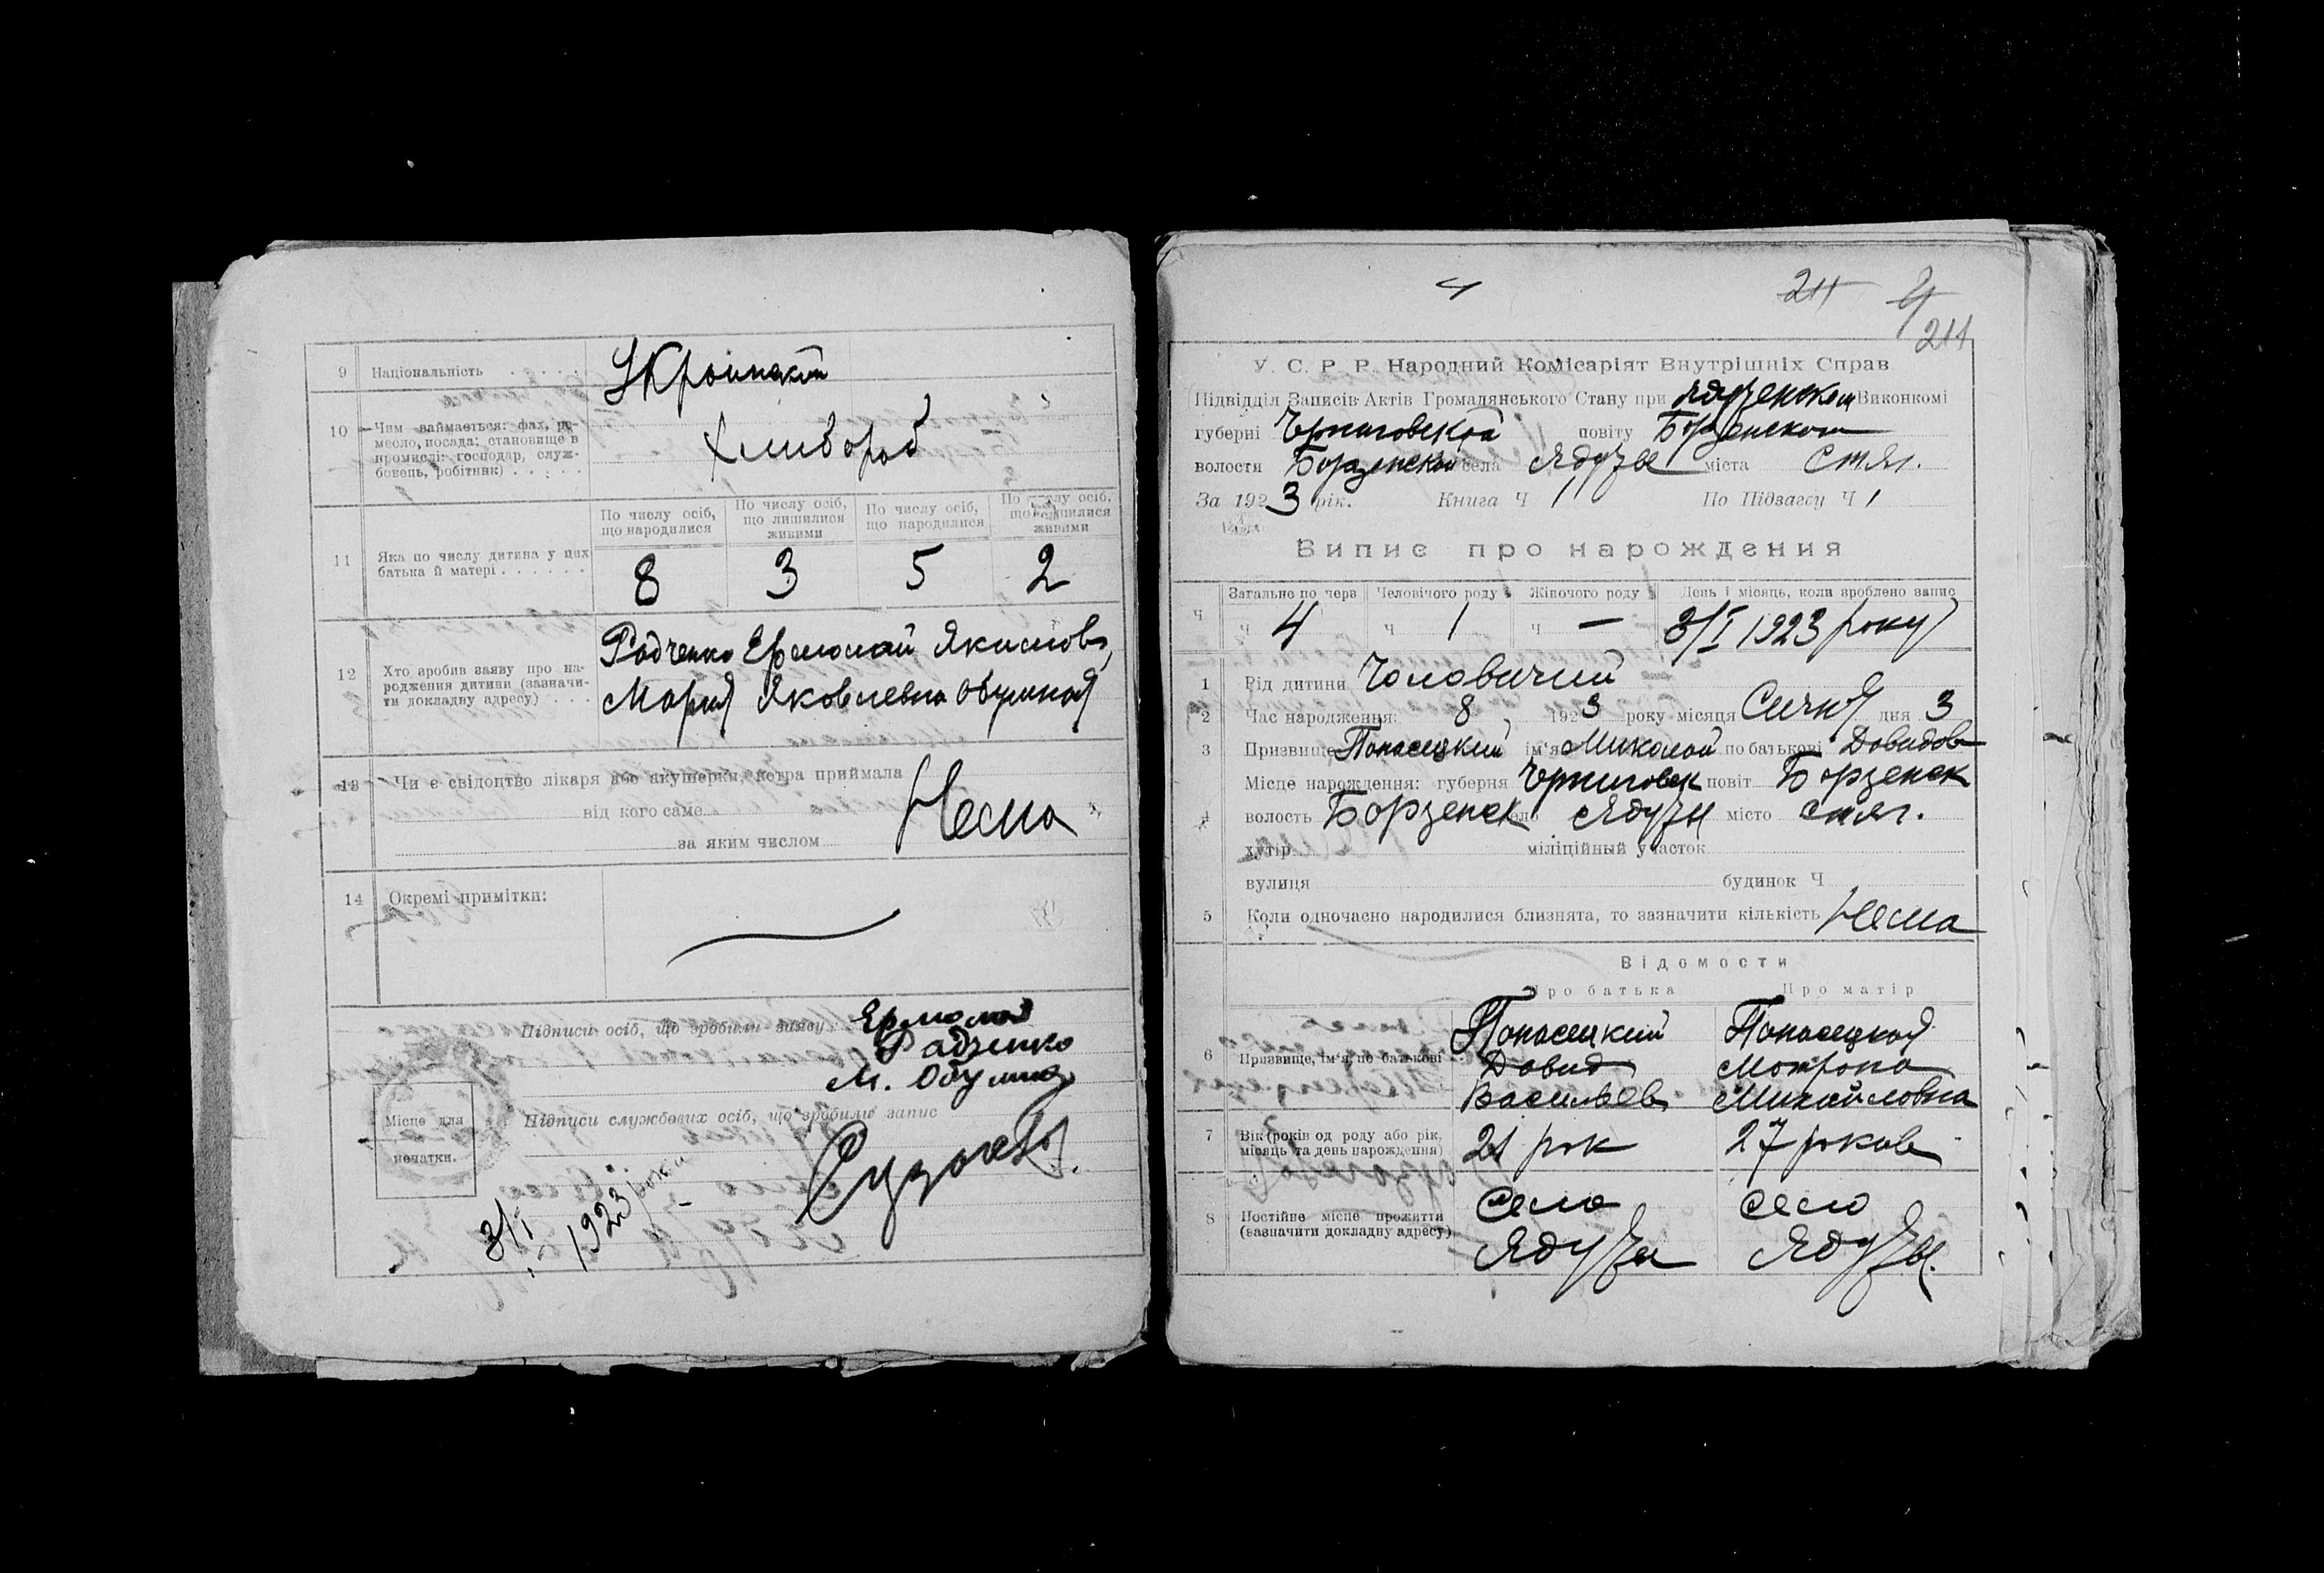 9 Національність . . . . . Украинский
10 Чим займається: фах, ре-
месло, посада; становище в
промислі: господар, служ-
бовець, робітник) . . . . . Хлибороб
По числу осіб, що народилися
По числу осіб, що лишилися живими
По числу осіб, що народилися
По числу осіб, що лишилися живими
11 Яка по числу дитина у цих
батька й матері . . . . . . 8 3 5 2
12 Хто зробив заяву про на-
родження дитини (зазначи-
ти докладну адресу) . . .
Радченко Ермолай Якимов,
Мария Яковлевна Обумная
13 Чи є свідоцтво лікаря або акушерки, котра приймала
від кого саме
за яким числом Нема
14 Окремі примітки:
Підписи осіб, що зробили заяву: Ермолай
Радченко
М. Обумная
Підписи службових осіб, що зробили запис
Місце для
печатки.
3/I 1923 року
4
211 21
211
У. С. Р. Р. Народний Комісаріят Внутрішніх Справ
Підвідділ Записів Актів Громадянського Стану при Ядузенском Виконкомі
губерні Черниговской повіту Борзенского
волости Борзенской села Ядузы міста
За 1923 рік. Книга Ч 1 По Підзагсу Ч 1
Випис про нарождения
Ч Загальне по черв Человічого роду Жіночого роду День і місяць, коли зроблено запис
Ч 4 Ч 1 Ч — 3/I 1923 року
1 Рід дитини Чоловичий
2 Час народження: 8, 1923 року місяця Сичня дня 3
3 Призвище Панасецкий ім'я Миколай по батькові Давидов
4 Місце нарождення: губерня Черниговск повіт Борзенск
волость Борзенск село Ядузы місто
хутір міліційный участок
вулиця будинок Ч
5 Коли одночасно народилися близнята, то зазначити кількість Нема
Відомости
Про батька Про матір
6 Призвище, ім'я, по батькові
Панасецкий Панасецкая
Давид Мотрона
Васильев Михайловна
7 Вік (років од роду або рік,
місяць та день нарождення) 21 рок 27 роков
8 Постійне місце прожиття
(зазначити докладну адресу)
село село
Ядузы Ядузы.